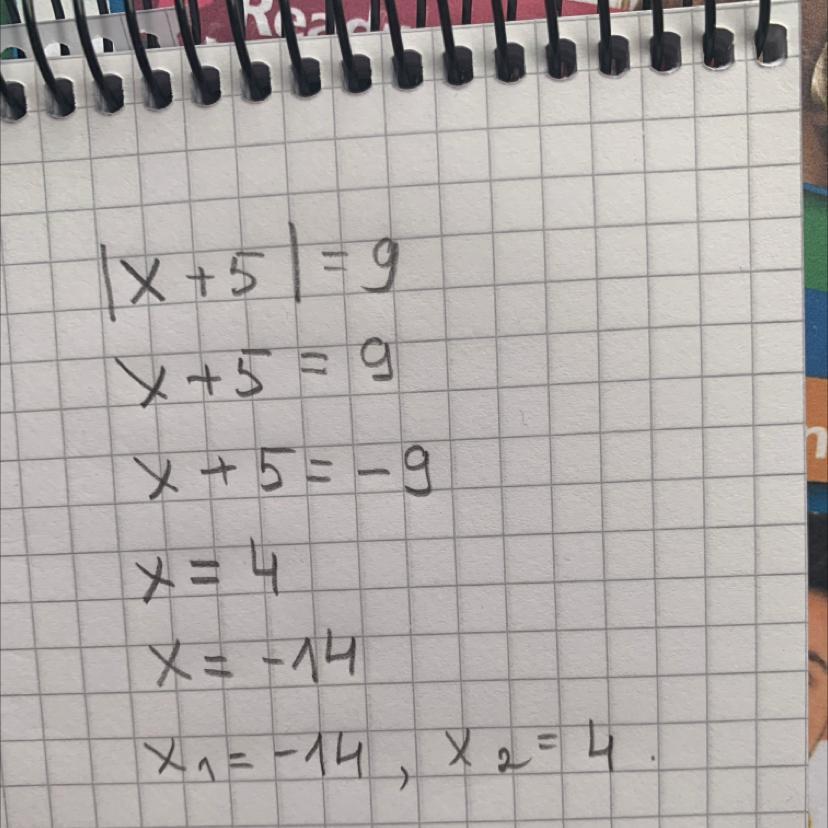 Read
|x+5|=9
x+5=9
x+5=-9
x=4
x=-14
x₁=-14, x₂=4.